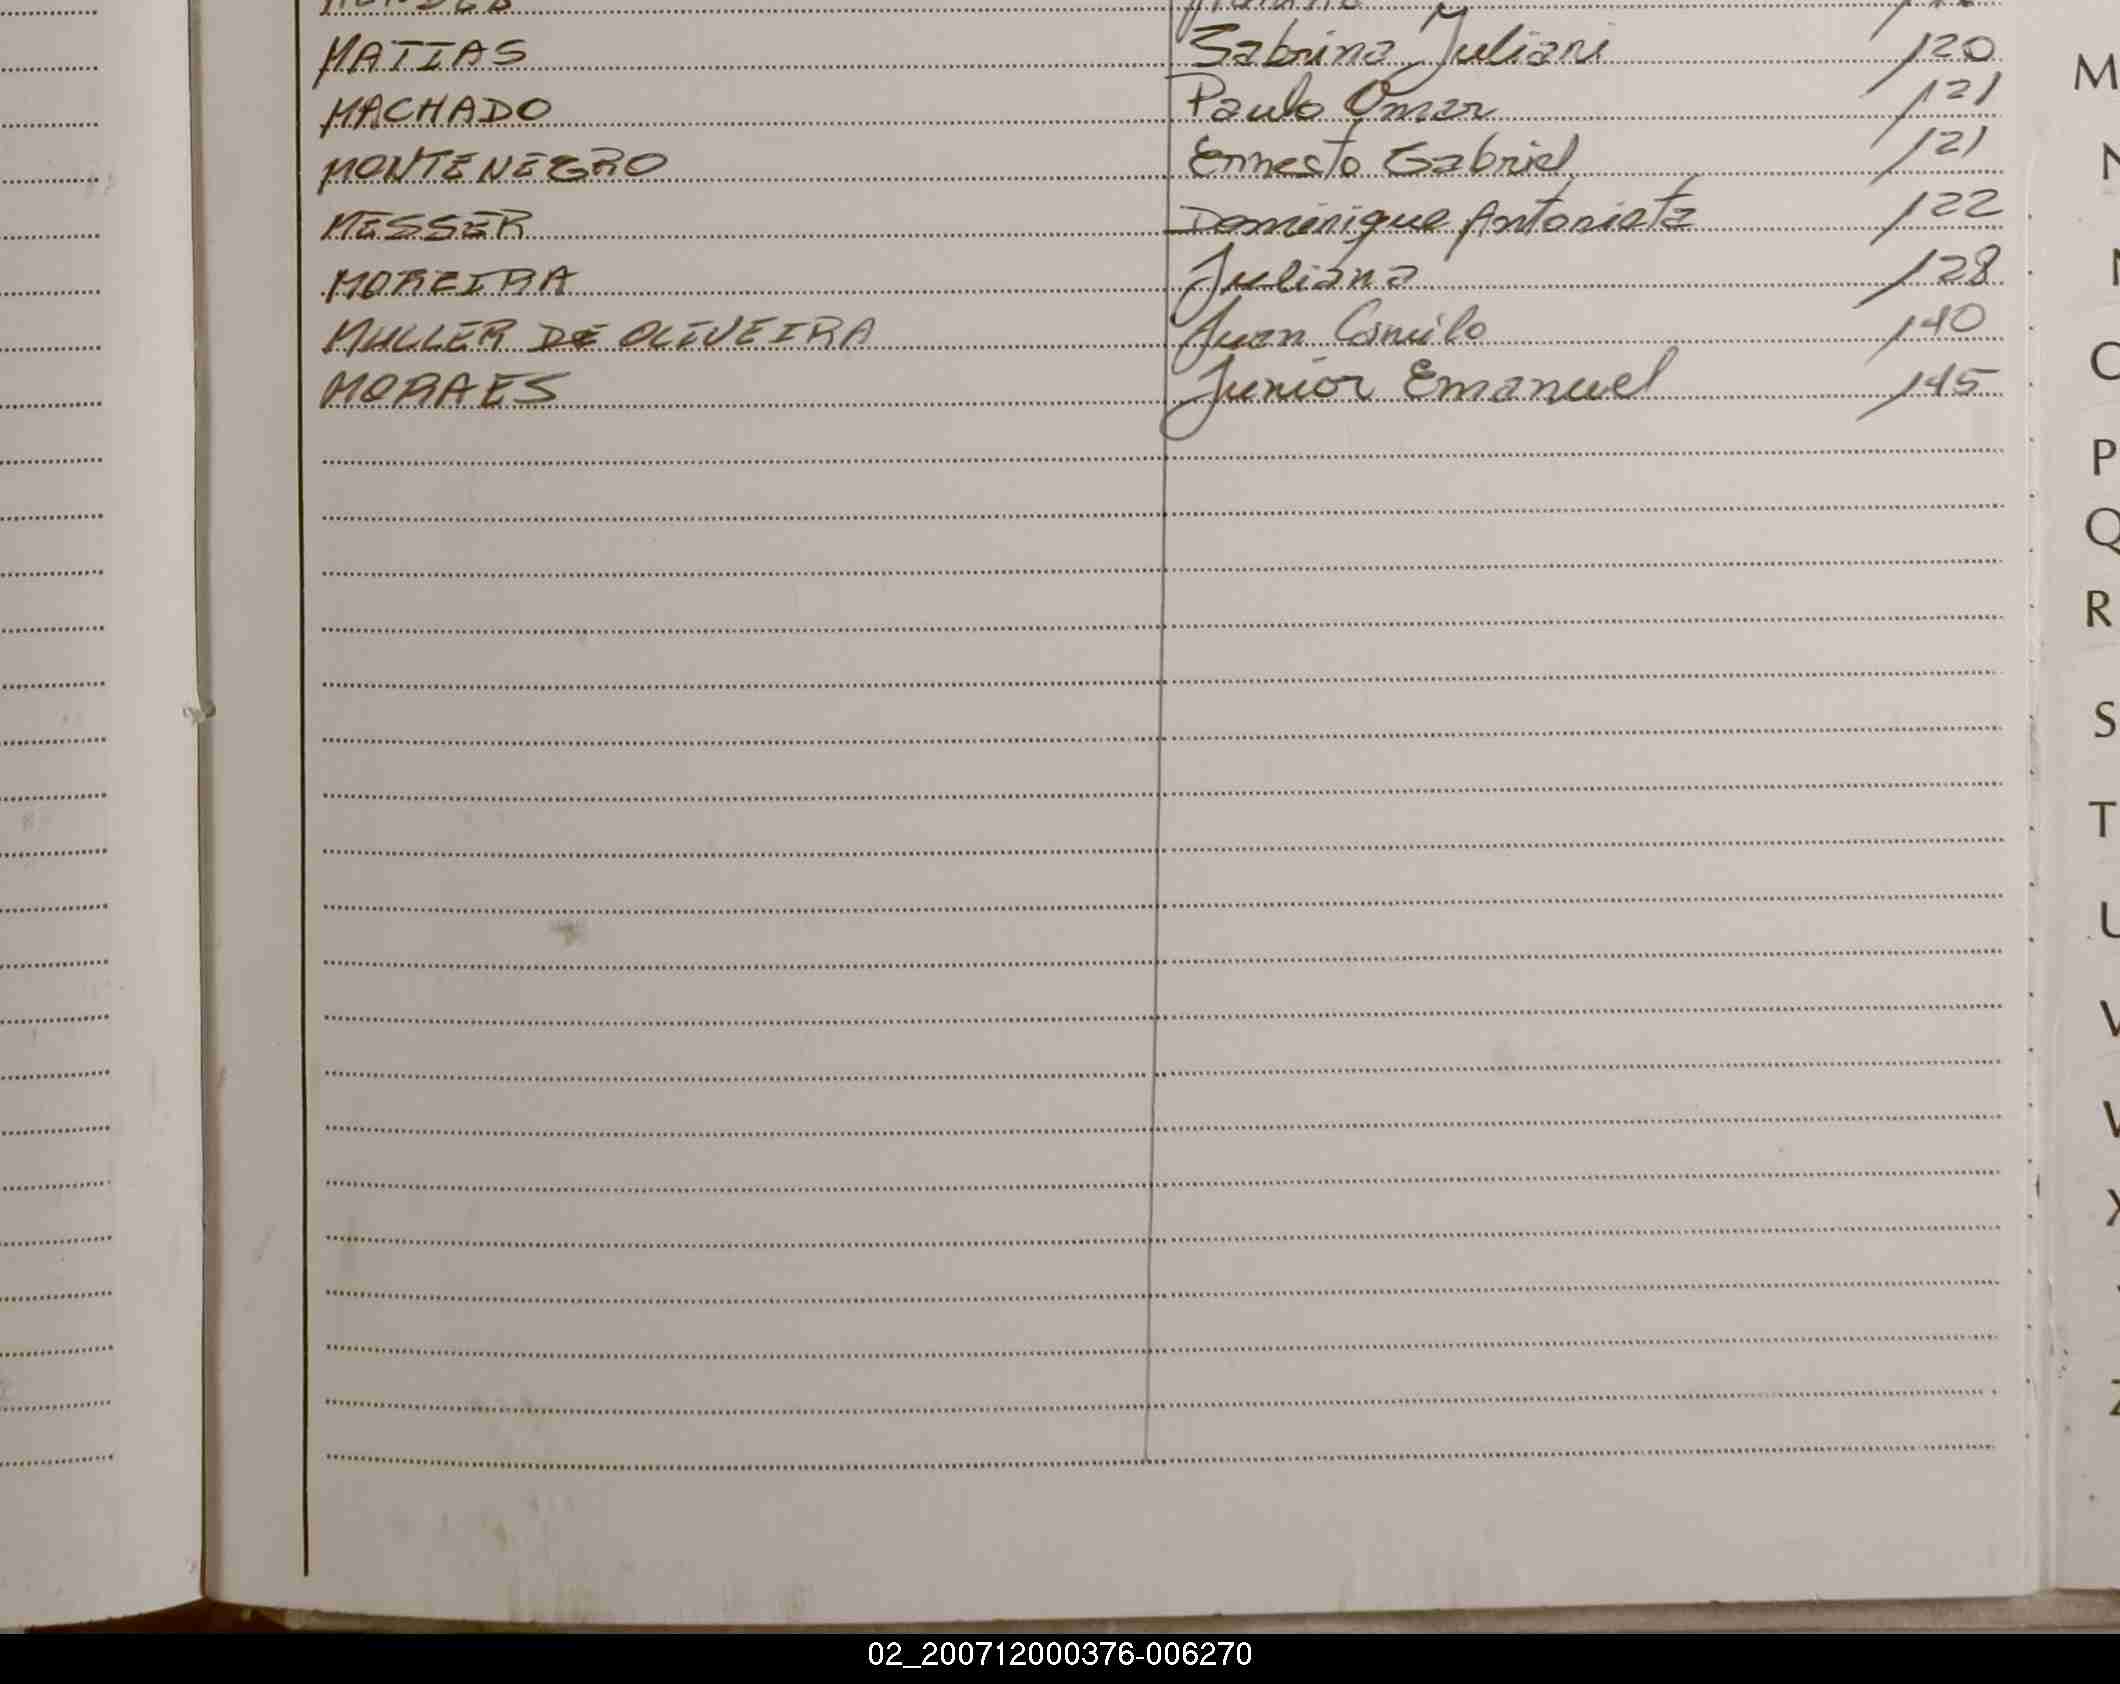 MATIAS Sabrina Juliani 120
MACHADO Paulo Omar 121
MONTENEGRO Ernesto Gabriel 121
MESSER Dominique Antonieta 122
MOREIRA Juliana 128
MULLER DE OLIVEIRA Juan Camilo 140
MORAES Junior Emanuel 145
M
N
O
P
Q
R
S
T
U
V
W
X
Z
02_200712000376-006270